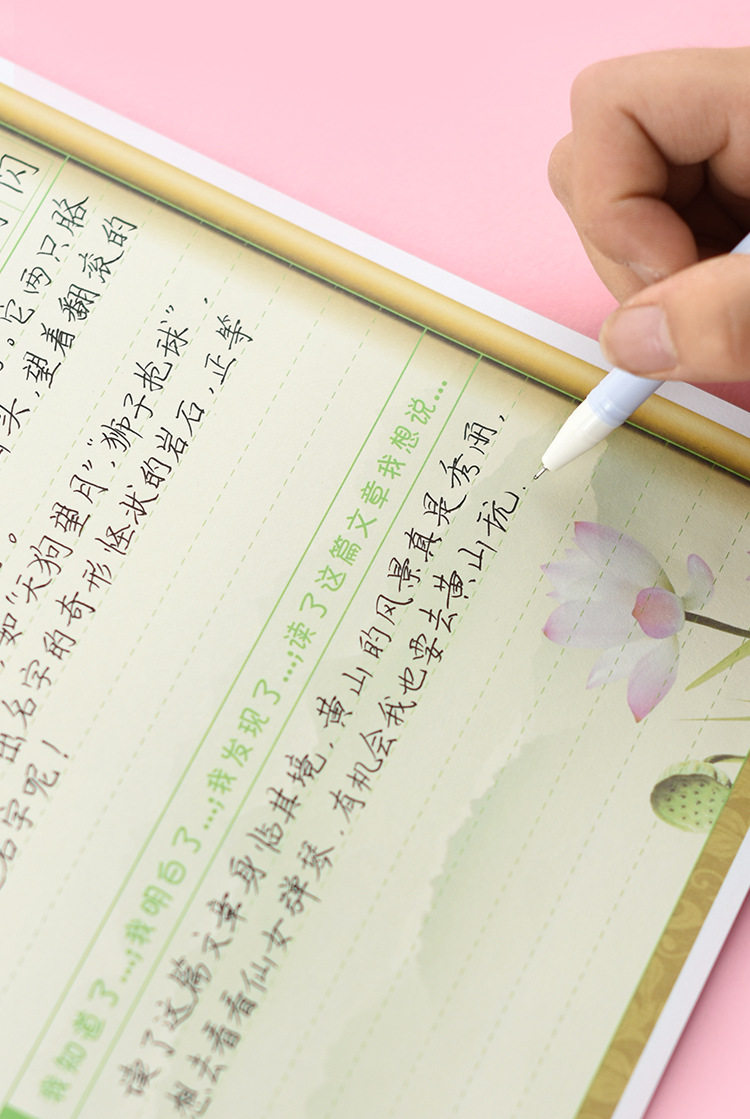 闪
它两只胳
头,望着翻滚的
如"天狗望月""狮子抢球",
出名字的奇形怪状的岩石,正等
名字呢!
我知道了…;我明白了…;我发现了…;读了这篇文章我想说…
读了这篇文章身临其境,黄山的风景真是秀丽,
想去看看仙女弹琴,有机会我也要去黄山玩.